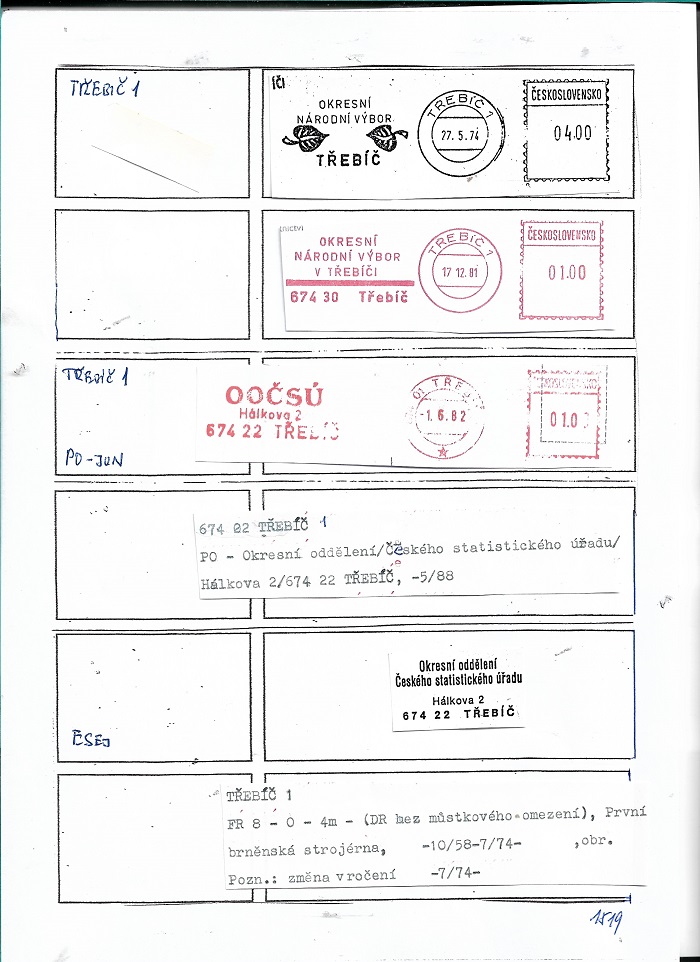 TŘEBÍČ 1
ÍČI
OKRESNÍ
NÁRODNÍ VÝBOR
TŘEBÍČ
TŘEBÍČ 1
27. 5. 74
ČESKOSLOVENSKO
0400
OKRESNÍ
NÁRODNÍ VÝBOR
V TŘEBÍČI
674 30 Třebíč
TŘEBÍČ 1
17 12. 81
ČESKOSLOVENSKO
01.00
TŘEBÍČ 1
PO-JUN
OOČSÚ
Hálkova 2
674 22 TŘEBÍČ
-1. 6. 82
01.0
674 22 TŘEBÍČ 1
PO - Okresní oddělení/Českého statistického úřadu/
Hálkova 2/674 22 TŘEBÍČ, -5/88
ESEJ
Okresní oddělení
Českého statistického úřadu
Hálkova 2
674 22 TŘEBÍČ
TŘEBÍČ 1
FR 8 - 0 - 4m - (DR bez můstkového omezení), První
brněnská strojérna, -10/58-7/74- ,obr.
Pozn.: změna vročení -7/74-
1519